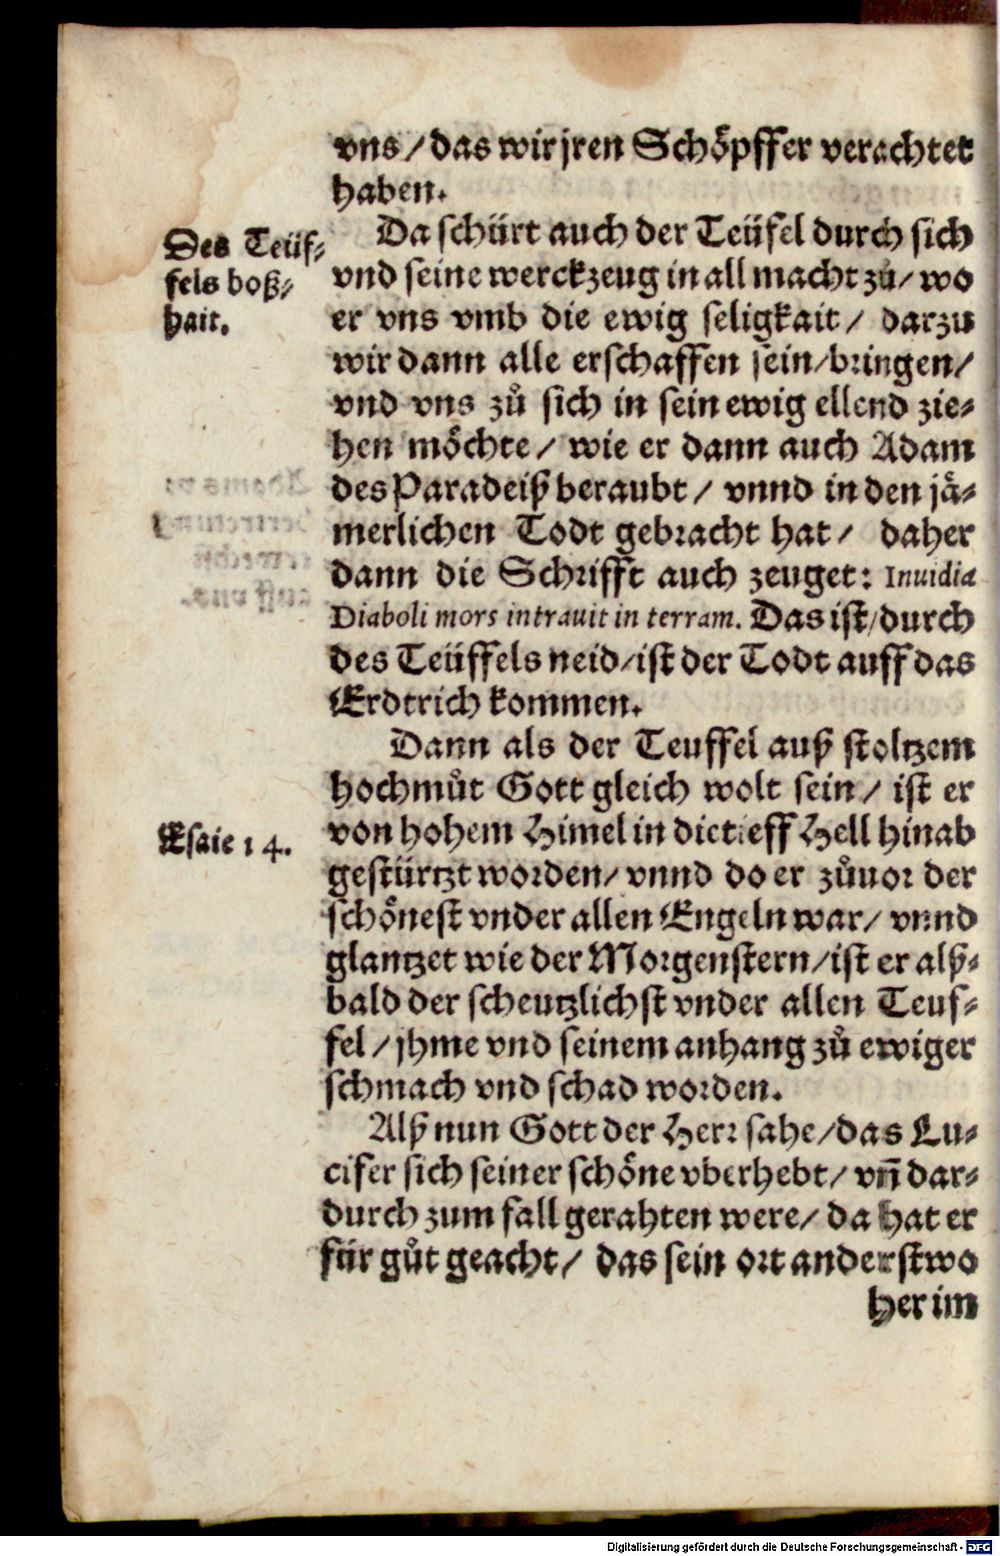 vns / das wir jren Schöpffer verachtet
haben.
Des Teüf-
fels boß-
hait.
Da schürt auch der Teüfel durch sich
vnd seine werckzeug in all macht zů / wo
er vns vmb die ewig seligkait / darzu
wir dann alle erschaffen sein / bringen /
vnd vns zů sich in sein ewig ellend zie-
hen möchte / wie er dann auch Adam
des Paradeiß beraubt / vnnd in den jä-
merlichen Todt gebracht hat / daher
dann die Schrifft auch zeuget: Inuidia
Diaboli mors intrauit in terram. Das ist / durch
des Teüffels neid / ist der Todt auff das
Erdtrich kommen.
Dann als der Teuffel auß stoltzem
hochmůt Gott gleich wolt sein / ist er
Esaie 14.
von hohem Himel in die tieff Hell hinab
gestürtzt worden / vnnd do er zůuor der
schönest vnder allen Engeln war / vnnd
glantzet wie der Morgenstern / ist er alß-
bald der scheutzlichst vnder allen Teuf-
fel / jhme vnd seinem anhang zů ewiger
schmach vnd schad worden.
Alß nun Gott der Herr sahe / das Lu-
cifer sich seiner schöne vberhebt / vñ dar-
durch zum fall gerahten were / da hat er
für gůt geacht / das sein ort anderstwo
her im
Digitalisierung gefördert durch die Deutsche Forschungsgemeinschaft - DFG